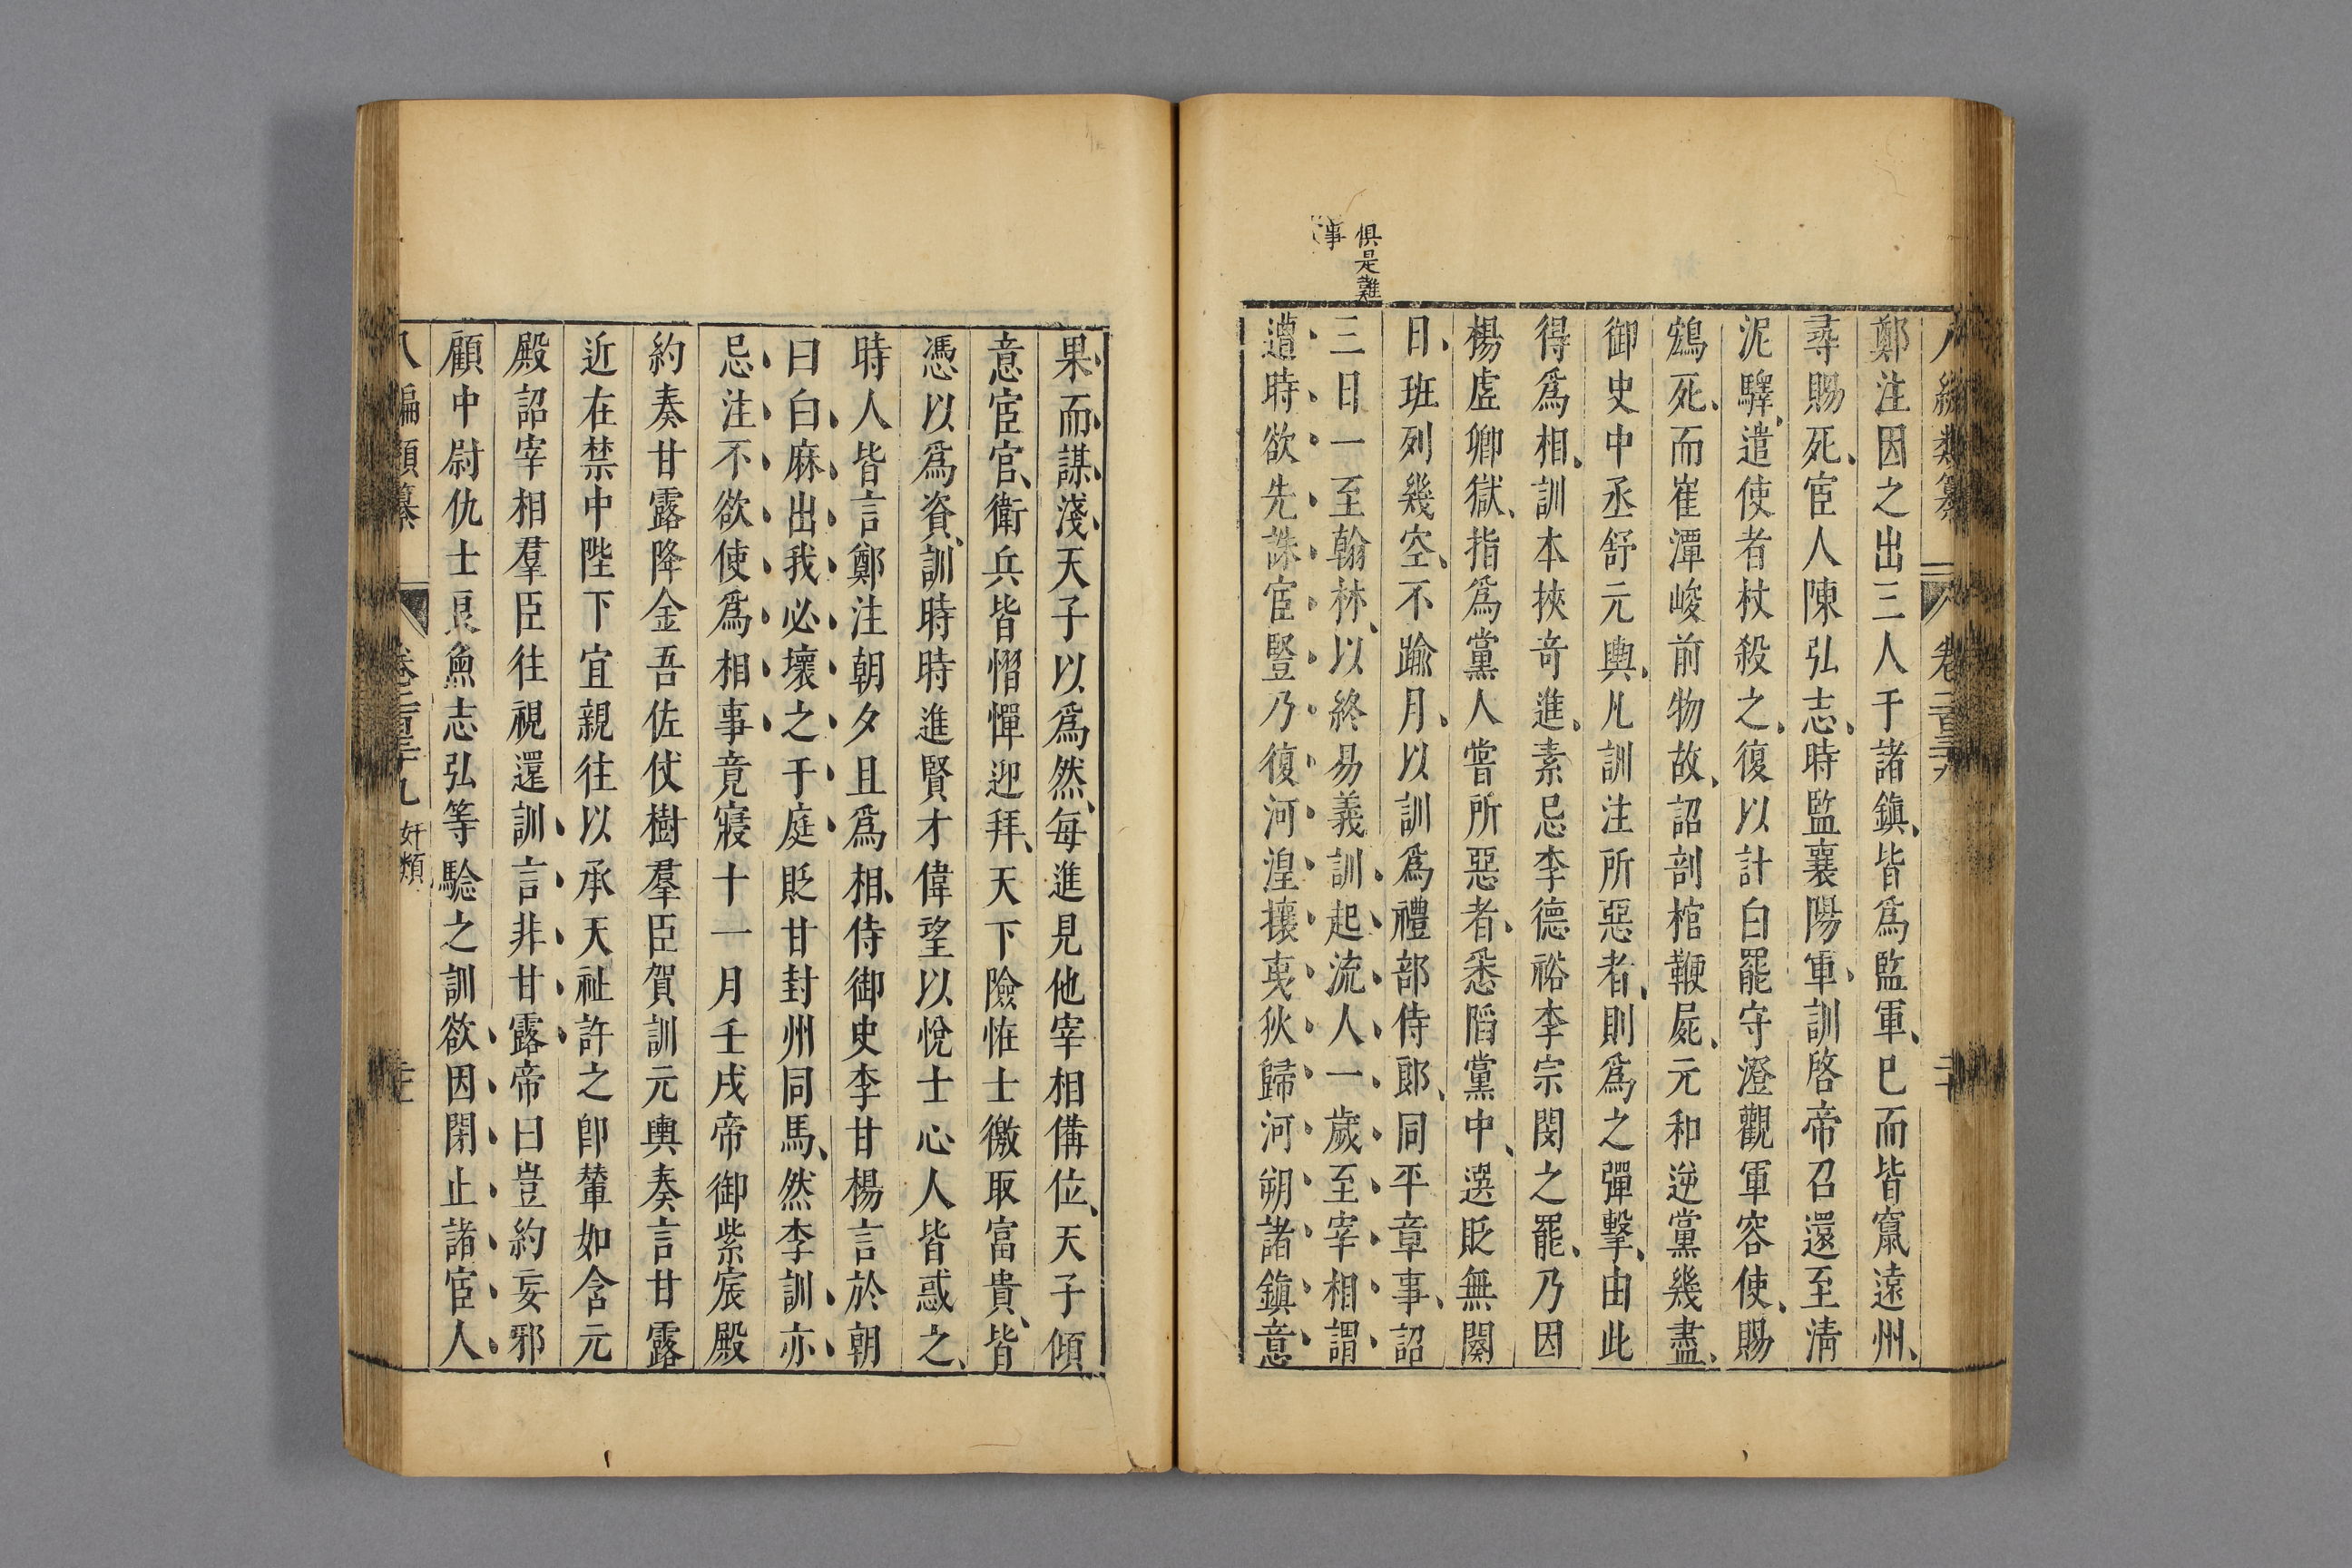 八編類纂 卷二百三十九 二十
鄭注因之出三人于諸鎮、皆爲監軍、巳而皆竄遠州、
尋賜死、宦人陳弘志、時監襄陽軍、訓啓帝召還至淸
泥驛、遣使者杖殺之、復以計白罷守澄觀軍容使、賜
鴆死、而崔潭峻前物故、詔剖棺鞭屍、元和逆黨幾盡、
御史中丞舒元輿、凡訓注所惡者、則爲之彈擊、由此
得爲相、訓本挾竒進、素忌李德裕李宗閔之罷、乃因
楊虗卿獄、指爲黨人嘗所惡者、悉陷黨中、遷貶無闋
日、班列幾空、不踰月、以訓爲禮部侍郎、同平章事、詔
三日一至翰林、以終易義訓起流人一歲至宰相謂
遭時欲先誅宦豎乃復河湟攘夷狄歸河朔諸鎮意
俱是難
事
果而謀淺天子以爲然、每進見他宰相備位、天子傾
意宦官、衛兵皆慴憚迎拜、天下險恠士徼取富貴、皆
憑以爲資、訓時時進賢才偉望以悅士心人皆惑之、
時人皆言鄭注朝夕且爲相、侍御史李甘楊言於朝
曰白麻出我必壞之于庭貶甘封州同馬、然李訓亦
忌注不欲使爲相事竟寢十一月壬戌帝御紫宸殿
約奏甘露降金吾佐仗樹羣臣賀訓元輿奏言甘露
近在禁中陛下宜親往以承天祉許之卽輦如含元
殿詔宰相羣臣往視還訓言非甘露帝曰豈約妄邪
顧中尉仇士良魚志弘等驗之訓欲因閉止諸宦人
八編類纂 卷二百三十九 奸類